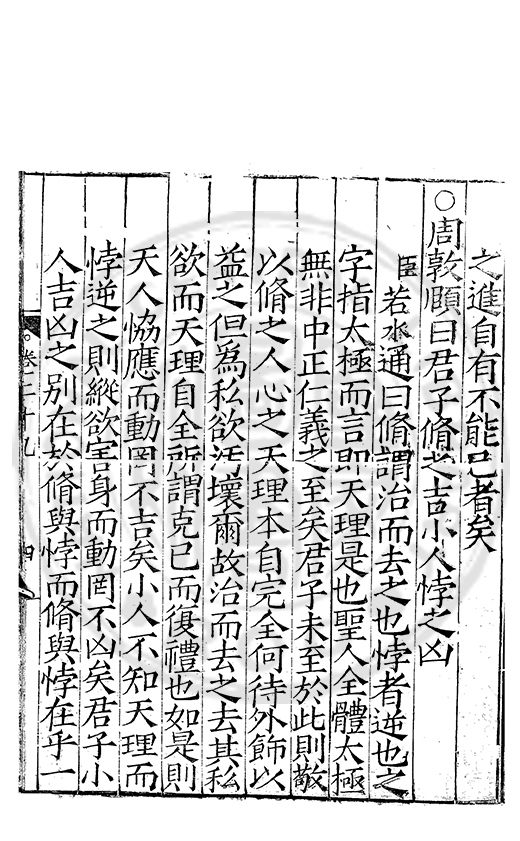 之進自有不能已者矣
○周敦頤曰君子脩之吉小人悖之凶
臣若水通曰脩謂治而去之也悖者逆也之
字指太極而言即天理是也聖人全體太極
無非中正仁義之至矣君子未至於此則敬
以脩之人心之天理本自完全何待外飾以
益之但為私欲汚壞爾故治而去之去其私
欲而天理自全所謂克已而復禮也如是則
天人恊應而動罔不吉矣小人不知天理而
悖逆之則縱欲害身而動罔不凶矣君子小
人吉凶之別在於脩與悖而脩與悖在乎一
卷二十九
四